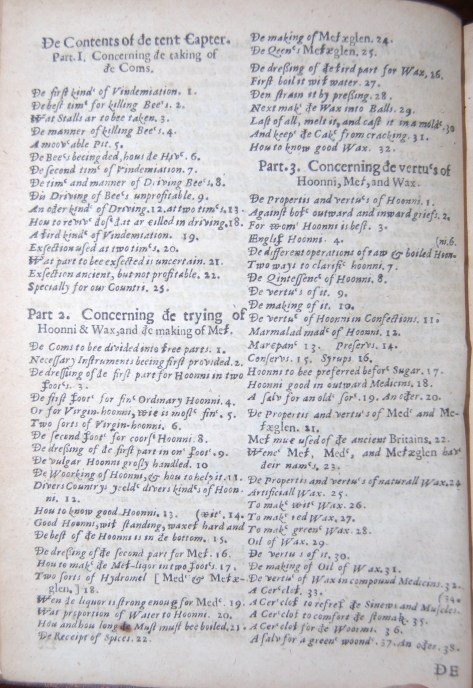 Ðe Contents of ðe tent Capter.
Part. I, Concerning ðe taking of
ðe Coms.
Ðe first kind' of Vindemiation. 1.
Ðe best tim' for killing Bee's. 2.
Wat Stalls ar to bee taken. 3.
Ðe manner of killing Bee's. 4.
A moov'able Pit. 5.
Ðe Bee's beeing ded, hous ðe Hiv'. 6.
Ðe second tim' of Vindemiation. 7.
Ðe tim' and manner of Driving Bee's. 8.
Ðis Driving of Bee's unprofitable. 9.
An oðer kind' of Driving. 12, at two tim's. 13.
How to reviv' ðos' ðat ar killed in driving. 18.
A ðird kind' of Vindemiation. 19.
Exsection used at two tim's. 20.
Wat part to bee exsected is uncertain. 21.
Exsection ancient, but not profitable. 22.
Specially for our Countri. 25.
Part 2. Concerning ðe trying of
Hoonni & Wax, and ðe making of Með.
Ðe Coms to bee divided into ðree parts. 1.
Necessary Instruments beeing first provided. 2.
Ðe dressing of ðe first part for Hoonni in two
ſoot's. 3.
Ðe first ſoot' for fin' Ordinary Hoonni. 4.
Or for Virgin-hoonni, wiċ is most' fin'. 5.
Two sorts of Virgin-hoonni. 6.
Ðe second ſoot' for coors' Hoonni. 8.
Ðe dressing of ðe first part in on' ſoot'. 9.
Ðe vulgar Hoonni grosly handled. 10
Ðe Woorking of Hoonni, & how to help it. 11.
Divers Countrys yeeld' divers kind's of Hoon-
ni. 12.
How to know good Hoonni. 13. (wit'. 14.
Good Hoonni, wiṫ standing, waxeṫ hard and
Ðe best of ðe Hoonni is in ðe bottom. 15.
Ðe dressing of ðe second part for Með. 16.
How to mak' ðe Með-liqor in two ſoot's. 17.
Two sorts of Hydromel [Med' & Meðx-
glen.] 18.
Wen ðe liquor is strong enough for Med'. 19.
Wat proportion of Water to Hoonni. 20.
How and how long ðe Must must bee boiled. 21.
Ðe Receipt of Spices. 22.
Ðe making of Meðxglen. 24.
Ðe Qeen's Meðxglen. 25.
Ðe dressing of ðe ðird part for Wax. 26.
First boil it wiṫ water. 27.
Ðen strain it by pressing. 28.
Next mak' ðe Wax into Balls. 29.
Last of all, melt it, and cast it in a mold'. 30
And keep' ðe Cak' from cracking. 31.
How to know good Wax. 32.
Part. 3. Concerning ðe vertu's of
Hoonni, Með, and Wax.
Ðe Propertis and vertu's of Hoonni. 1.
Against boṫ outward and inward griefs. 2.
For wom' Hoonni is best. 3.
Engliſ Hoonni. 4. (ni. 6.
Ðe different operations of raw & boiled Hoon-
Two ways to clarifi' hoonni. 7.
Ðe Qintessenc' of Hoonni. 8.
Ðe vertu's of it. 9.
Ðe making of it. 10.
Ðe vertu' of Hoonni in Confections. 11.
Marmalad mad' of Hoonni. 12.
Marċpan' 13. Preserv's. 14.
Conserv's. 15. Syrups 16.
Hoonni to bee preferred befor' Sugar. 17.
Hoonni good in outward Medicins. 18.
A salv' for an old' sor'. 19. An oðer. 20.
Ðe Propertis and vertu's of Med' and Me-
ðxglen. 21.
Með muċ used of ðe ancient Britains. 22.
Wenc' Með, Med', and Meðxglen hav'
ðeir nam's. 23.
Ðe Propertis and vertu's of naturall Wax. 24
Artificiall Wax. 25.
To mak' wit' Wax. 26.
To mak' red Wax. 27.
To mak' green' Wax. 28.
Oil of Wax. 29.
Ðe vertu's of it. 30.
Ðe making of Oil of Wax. 31.
Ðe vertu' of Wax in compound Medicins. 32.
A Cer'clot. 33. (34.
A Cer'clot to refreſ ðe Sinews and Muscles.
A Cer'clot to comfort ðe stomak. 35.
A Cer'clot for ðe Woorms. 36.
A salv for a green' woond'. 37. An oðer. 38.
ÐE